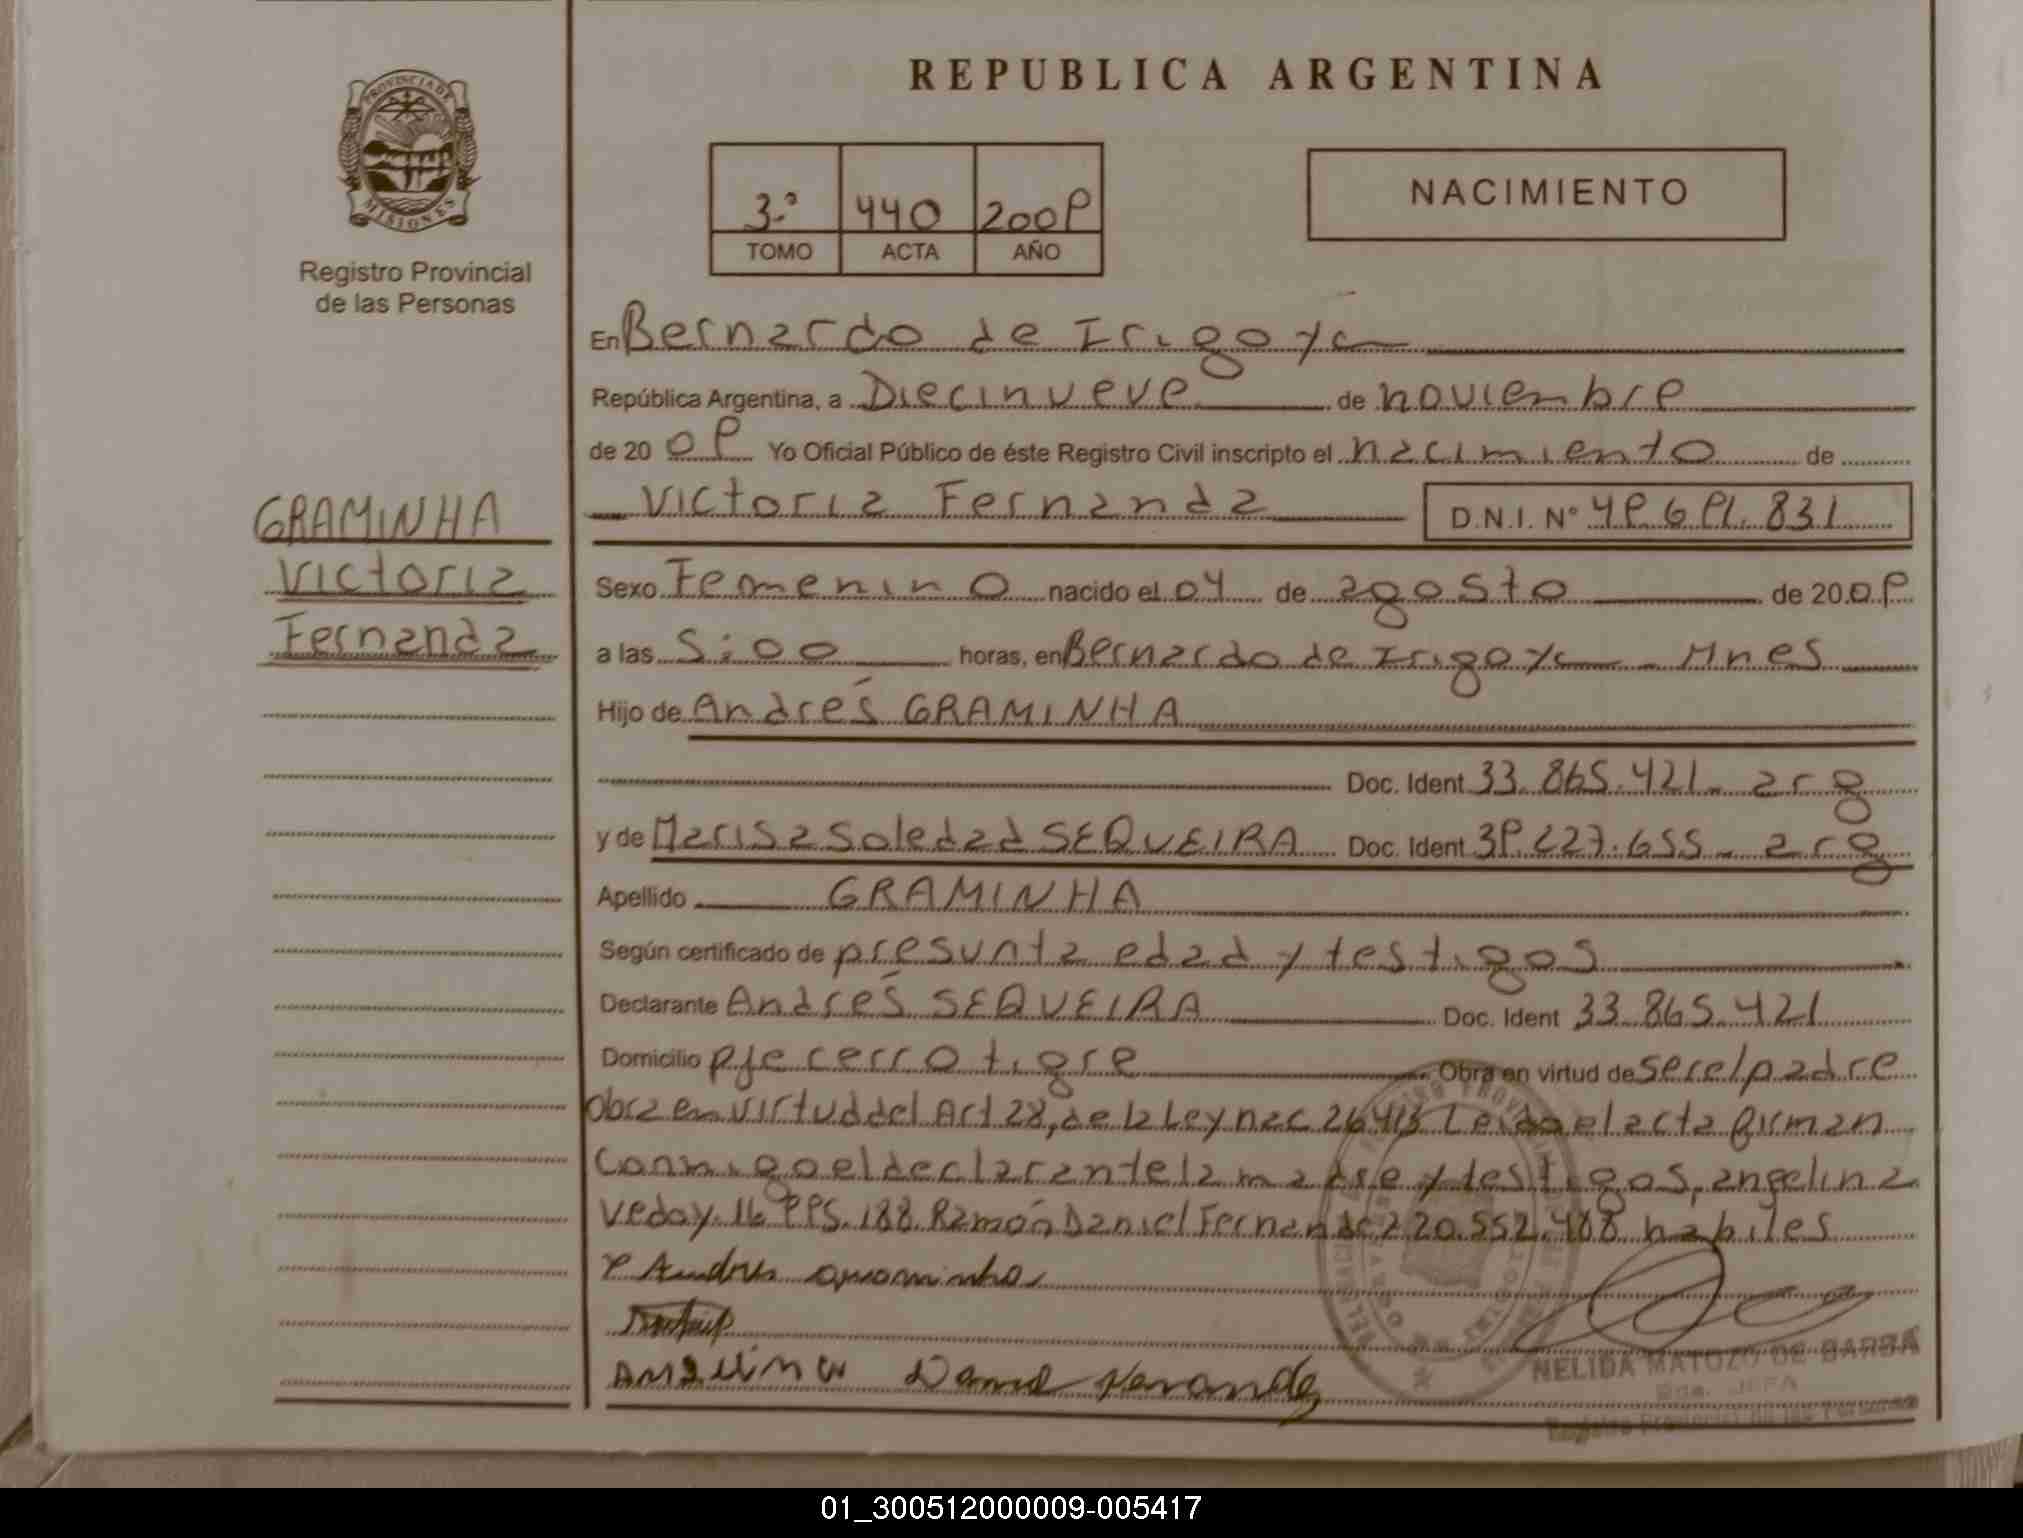 PROVINCIA DE
MISIONES
Registro Provincial
de las Personas
REPUBLICA ARGENTINA
3.º 440 2009
TOMO ACTA AÑO
NACIMIENTO
En Bernardo de Irigoye
República Argentina, a Diecinueve de noviembre
de 20 09 Yo Oficial Público de éste Registro Civil inscripto el nacimiento de
Victoria Fernanda D.N.I. Nº 49.691.831
GRAMINHA
Victoria
Fernanda
Sexo Femenino nacido el 04 de agosto de 20 09
a las 5:00 horas, en Bernardo de Irigoye - Mnes
Hijo de Andrés GRAMINHA
Doc. Ident 33.865.421 - arg
y de Marisa Soledad SEQUEIRA Doc. Ident 39.227.655 - arg
Apellido GRAMINHA
Según certificado de presunta edad y testigos
Declarante Andrés SEQUEIRA Doc. Ident 33.865.421
Domicilio pje cerro tigre Obra en virtud de ser el padre
Obra en virtud del Art 28, de la Ley nac 26413 Leido el acta firman
Conmigo el declarante la madre y testigos, angelina
Vedoy 16.995.188 Ramón Daniel Fernandez 20.552.488 habiles
Andres graminha
Angelina Daniel Fernandez
NELIDA MATOZO DE BARBA
JEFA
Registro Provincial de las Personas
01_300512000009-005417